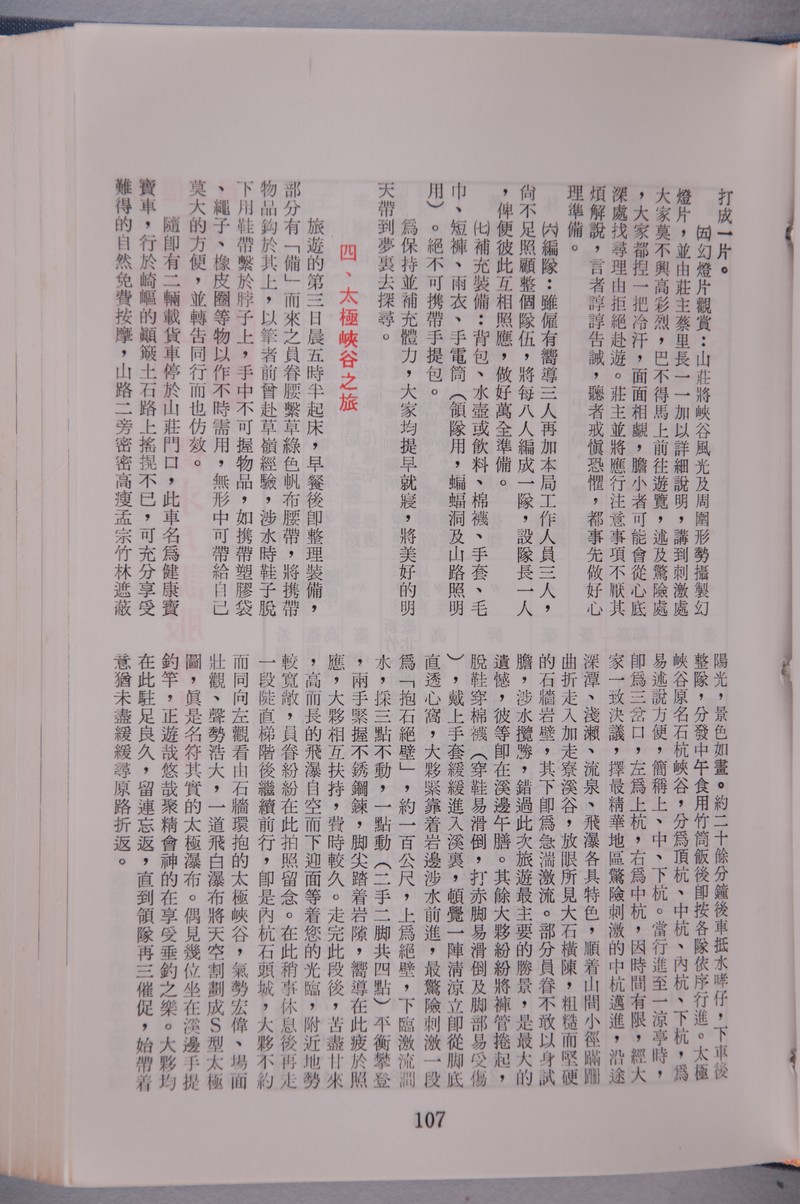 打成一片。
㈤幻燈片觀賞：山莊將峽谷風光及周圍形勢攝製幻
燈片，並由莊主蔡里長一一加以詳細說明，講到刺激處
大家莫不興高彩烈，巴不得馬上前往遊覽，述及驚險處
，大家都捏一把冷汗，面面相覷，膽小者可能會從心底
深處找尋理由拒絕赴遊。莊主並將應行注意事項不厭其
煩解說，言者諄諄告誡，聽者戒愼恐懼，都事先做好心
理準備。
㈥編隊：雖僱有嚮導三人再加本局工作人員三人，
尙不足照顧整個隊伍，將每八人編成一隊，設隊長一人
，俾便彼此互相照應，做好萬全準備。
㈦補充裝備：背包、水壺或飲料、棉襪、手套、毛
巾、短褲、雨衣、手電筒（領隊用，蝙蝠洞及山路照明
用）。絕不可携帶手提包。
爲保持並補充體力，大家均提早就寢，將美好的明
天帶到夢裏去探尋。
四、太極峽谷之旅
旅遊的第三日晨五時半起床，早餐後卽整理裝備，
部分有「備」而來之員眷腰繫草綠色帆布腰帶，將携帶
物品鈎於其上，以筆者前曾赴草嶺經驗，涉水時鞋子脫
下用鞋帶繫於脖子上，手中不可握物品，如携帶塑膠袋
、繩子、橡皮圈等物以作不時需用，無形中可帶給自己
莫大的方便，並轉告同行而也仿效。
隨卽有二輛載貨車停於山莊門口，此車名爲健康寶
寶車，行於崎嶇的顚簸土石路上搖挸不已，可充分享受
難得的自然免費按摩，山路二旁密密高瘦孟宗竹林遮蔽
陽光，景色如畫。約二十餘分鐘後車抵水哮仔，下車後
整隊，分發中午食用竹筒飯後卽按各隊依序行進。太極
峽谷原名石杭峽谷，分爲頂杭、中杭、內杭、下杭，爲
易述說方便，簡稱上、中、下杭。當行進至一涼亭時，
卽爲三岔口，左爲上杭，右爲中杭，因時間有限，經大
家一致決議，擇最精華地區驚險刺激的中杭邁進，沿途
深潭、淺瀨、流泉、飛瀑各具特色，順着山間小徑蹣跚
曲折走入加走寮溪谷，放眼所見大石橫陳，粗糙而堅硬
的石牆岩壁，其下卽爲急湍激流。部分員眷不敢以身試
膽，涉水攬勝，錯過此次旅遊最主要的勝景，是最大的
遺憾，彼等卽在溪邊午膳。其餘大夥紛紛將褲管捲起，
脫鞋穿棉襪（穿鞋易滑倒，打赤脚易滑倒及脚部易受傷
），戴上手套緩緩進入溪裏，頓覺一陣淸涼立卽從脚底
直透心窩，大夥緊靠着岩邊涉水前進，最驚險刺激一段
爲「抱石絕壁」，約一百公尺，上爲絕壁，下臨激流澗
水，採三點不動，一點動（二手二脚共四點）平衡攀登
，兩手緊握不銹鋼鍊，脚尖踏着岩隙，嚮導在此疲於照
應，大夥相互扶持，費時較久。走完此段後，苦盡甘來
，高而長的飛瀑自空而下迎面等着您的光臨，附近地勢
較寬敞，員眷紛紛在此拍照留念。在此稍事休息後再走
一段陡直梯階後繼續前行，卽是內杭石頭城，大夥不約
而同向左觀看由石牆環抱的太極峽谷，氣勢宏偉、場面
壯觀、聲勢浩大，一道飛白瀑布將天空割劃成Ｓ型太極
圖，眞是名符其實的太極瀑布。偶見幾位坐在溪邊手提
釣竿，正遊哉悠哉聚精會神的在享受垂釣之樂。大夥均
在此駐足良久，留連忘返，直到領隊再三催促，始帶着
意猶未盡緩緩尋原路折返。
107